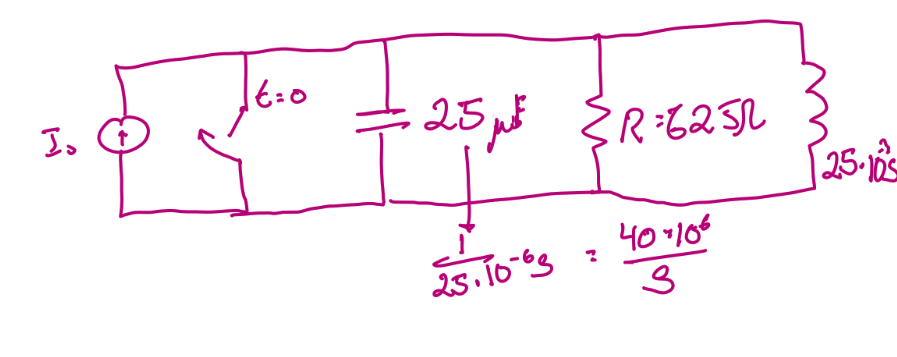 t=0
I₀
25 µF
R=625Ω
25·10⁻³s
1
25·10⁻⁶s
=
40·10⁶
s